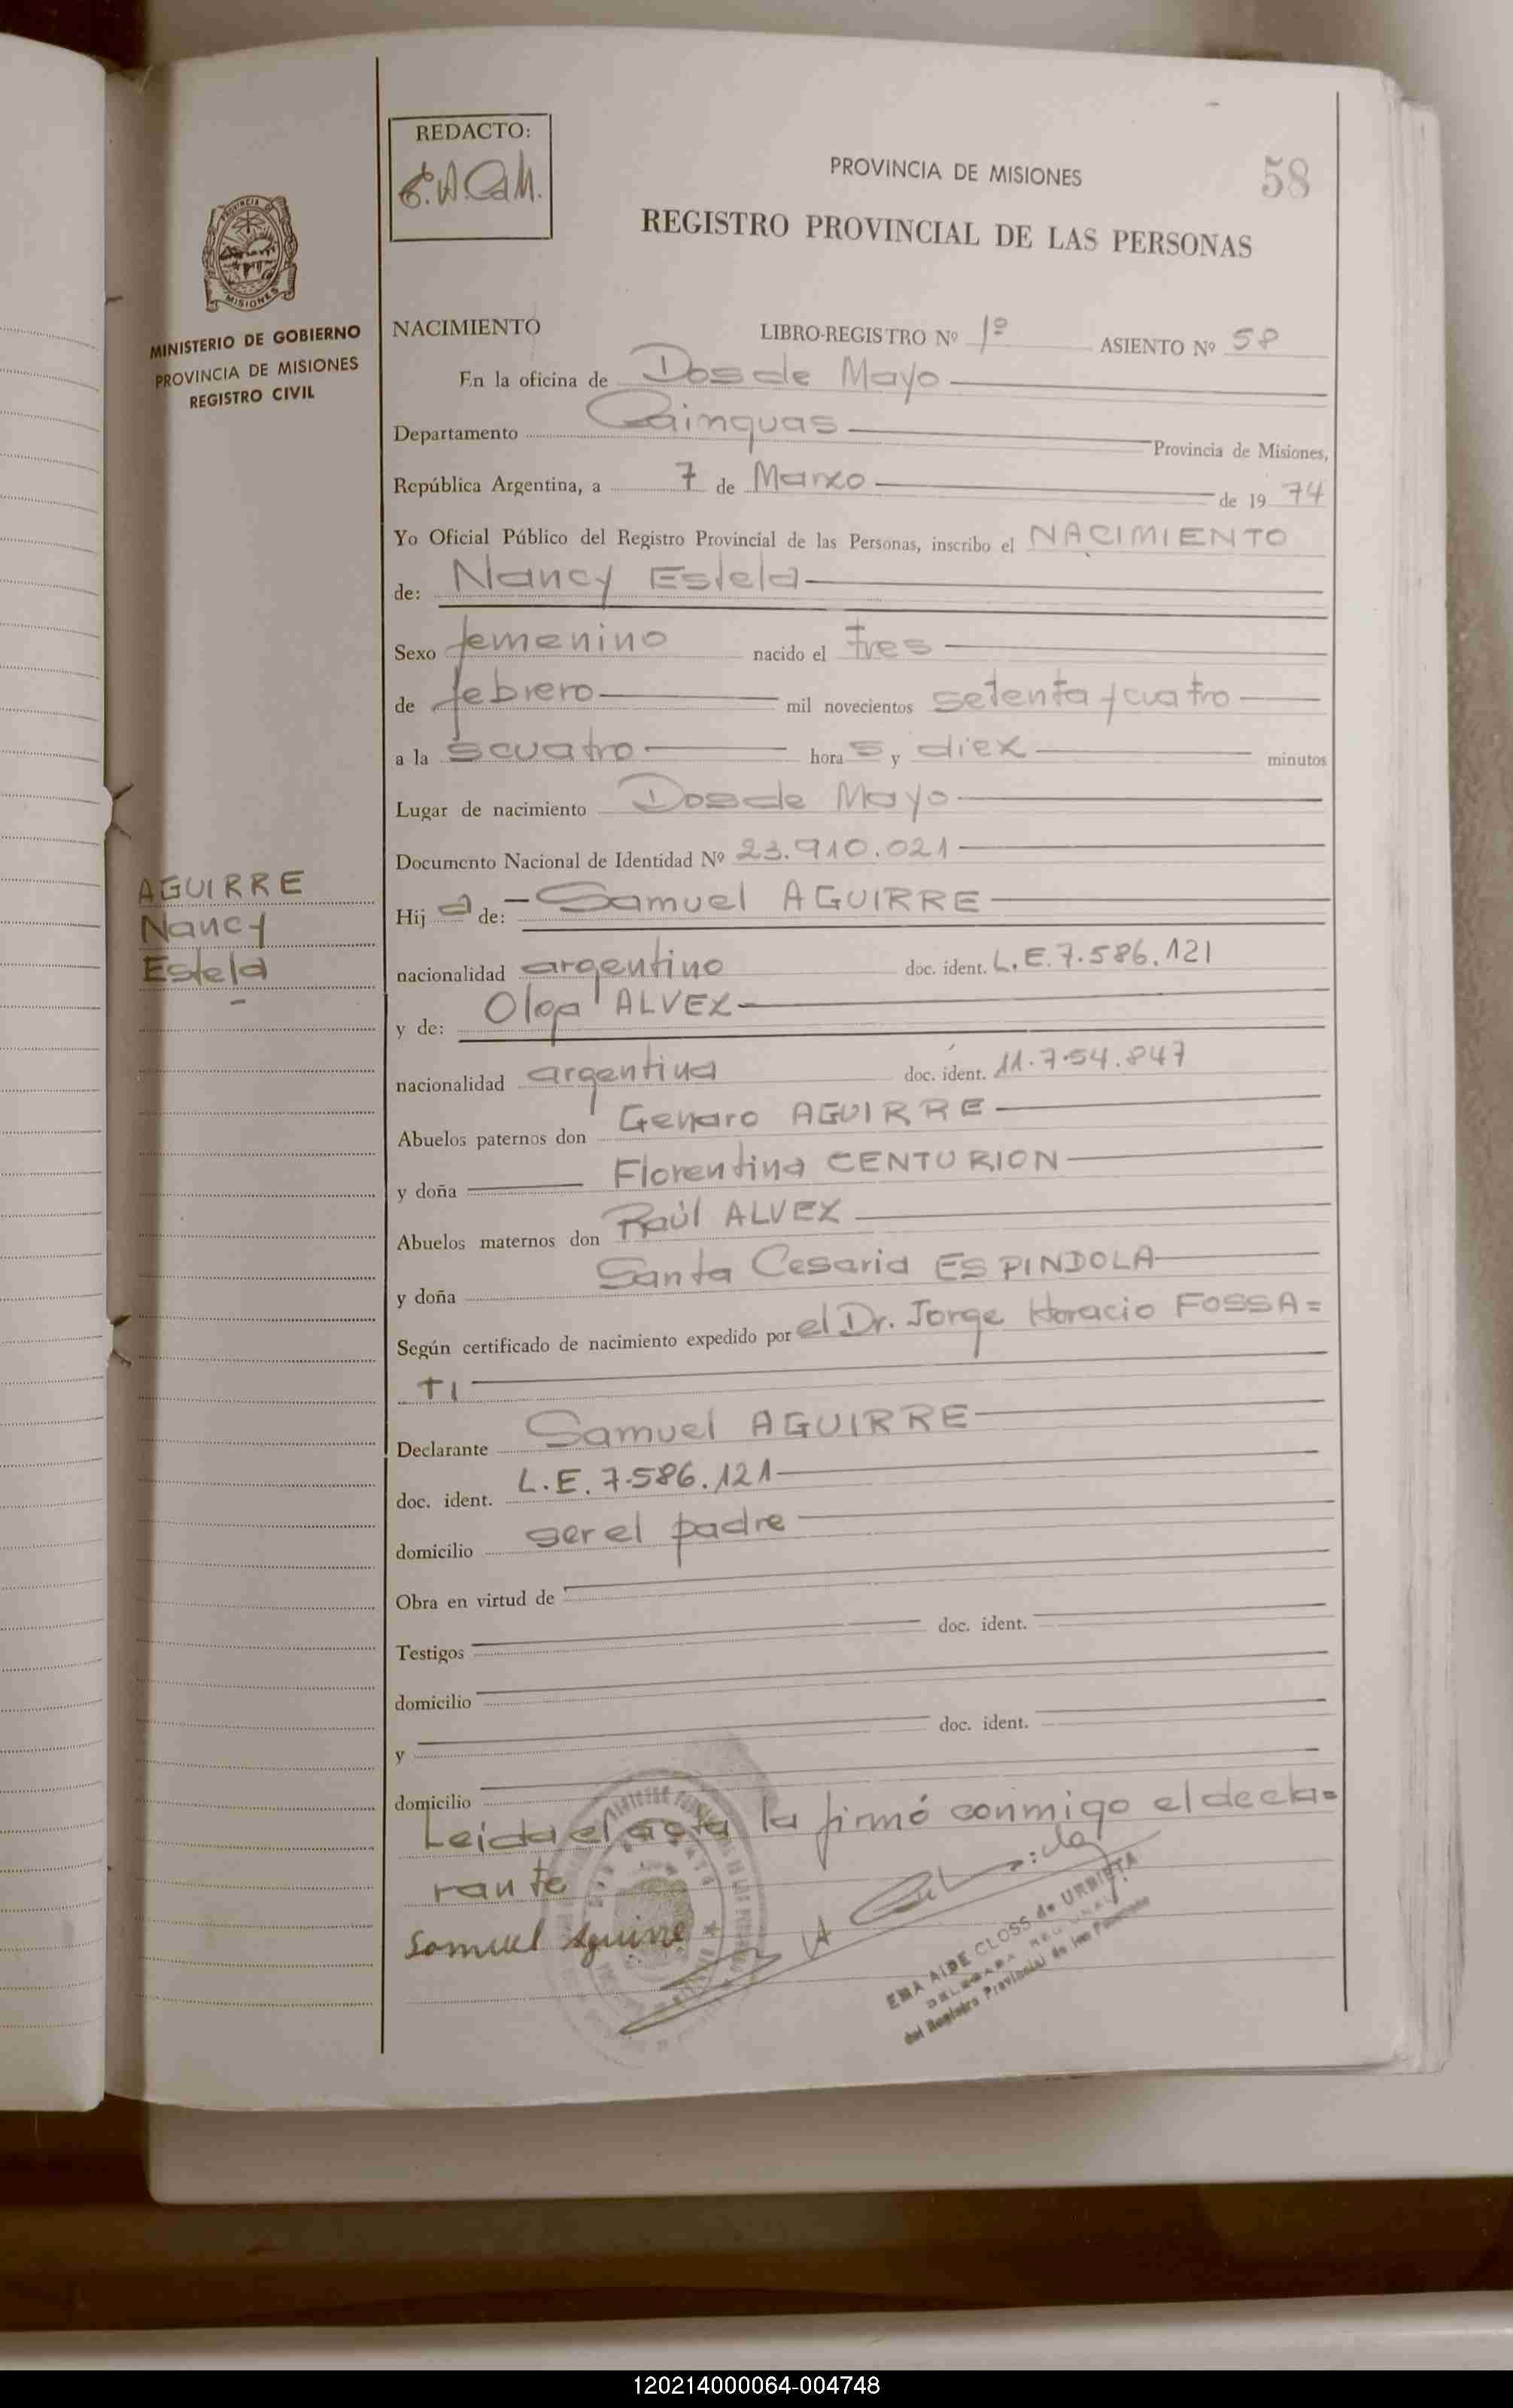 REDACTO:
E.A.CdeU.
PROVINCIA DE MISIONES
58
REGISTRO PROVINCIAL DE LAS PERSONAS
PROVINCIA DE
MISIONES
MINISTERIO DE GOBIERNO
PROVINCIA DE MISIONES
REGISTRO CIVIL
AGUIRRE
Nancy
Estela
NACIMIENTO LIBRO-REGISTRO Nº 1º ASIENTO Nº 58
En la oficina de Dos de Mayo
Departamento Cainguas Provincia de Misiones,
República Argentina, a 7 de Marzo de 19 74
Yo Oficial Público del Registro Provincial de las Personas, inscribo el NACIMIENTO
de: Nancy Estela
Sexo femenino nacido el tres
de febrero mil novecientos setenta y cuatro
a la s cuatro hora s y diez minutos
Lugar de nacimiento Dos de Mayo
Documento Nacional de Identidad Nº 23.910.021
Hij a de: Samuel AGUIRRE
nacionalidad argentino doc. ident. L.E. 7.586.121
y de: Olga ALVEZ
nacionalidad argentina doc. ident. 11.754.847
Abuelos paternos don Genaro AGUIRRE
y doña Florentina CENTURION
Abuelos maternos don Raúl ALVEZ
y doña Santa Cesaria ESPINDOLA
Según certificado de nacimiento expedido por el Dr. Jorge Horacio FOSSA=
TI
Declarante Samuel AGUIRRE
doc. ident. L.E. 7.586.121
domicilio ser el padre
Obra en virtud de
Testigos doc. ident.
domicilio
y doc. ident.
domicilio
Leida el acta la firmó conmigo el decla=
rante
Samuel Aguirre
EMA AIDE CLOSS de URBIETA
DELEGADA REGIONAL
del Registro Provincial de las Personas
120214000064-004748